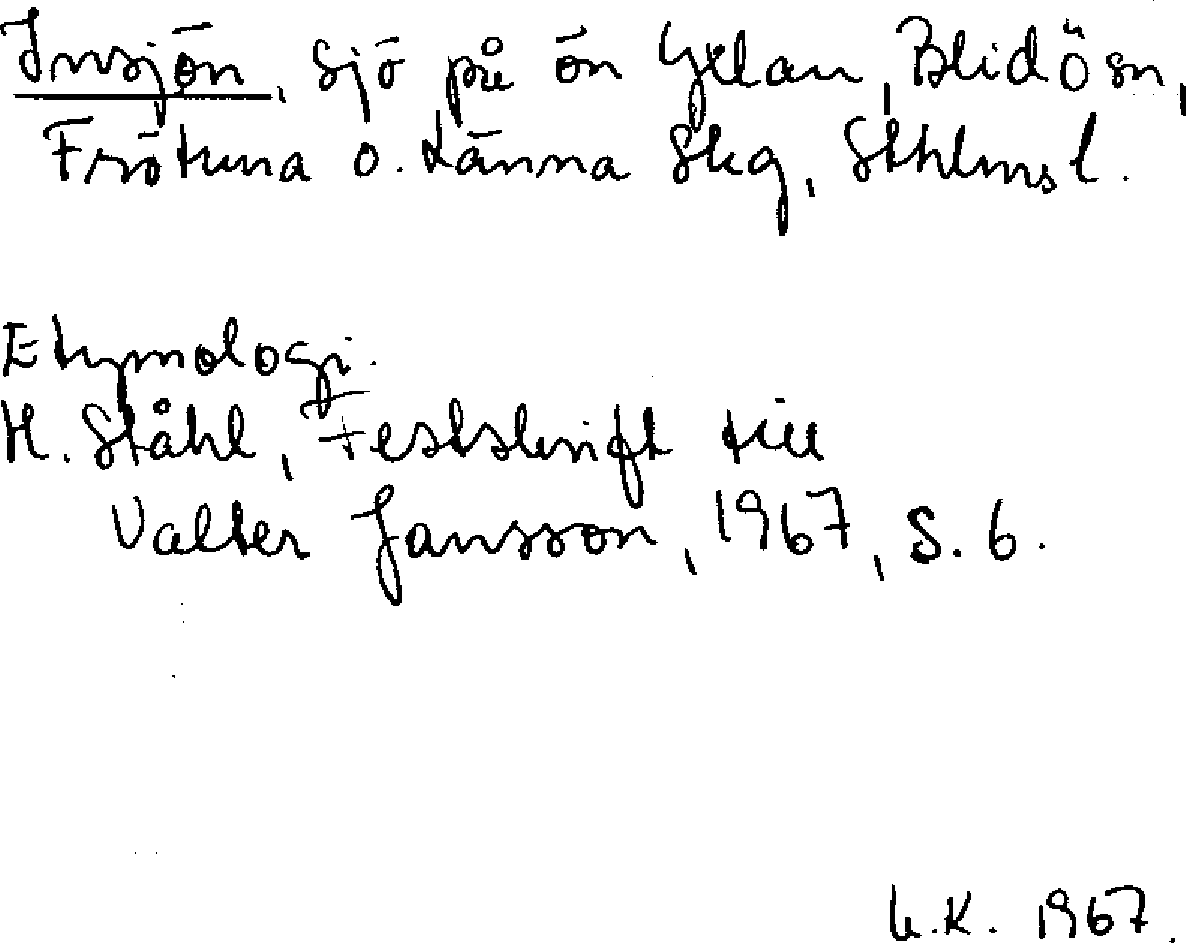 Insjön, sjö på ön Yxlan, Blidö sn,
Frötuna o. Länna Skg, Sthlms l.
Etymologi.
H. Ståhl, Festskrift till
Valter Jansson, 1967, s. 6.
K. 1967.